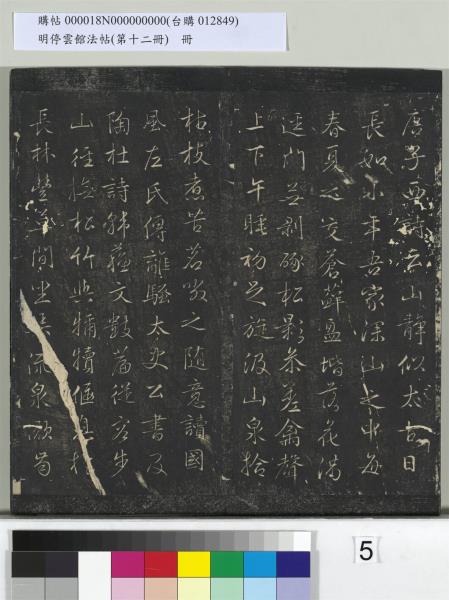 購帖 000018N000000000(台購 012849)
明停雲館法帖(第十二冊) 冊
唐子西詩云山靜似太古日
長如小年吾家深山之中每
春夏之交蒼蘚盈堦落花滿
逕門無剝啄松影參差禽聲
上下午睡初足旋汲山泉拾
枯枝煮苦茗啜之隨意讀國
風左氏傳離騷太史公書及
陶杜詩韓蘇文數篇從容步
山徑撫松竹與犢偃息於
長林豐草間坐弄流泉漱齒
5